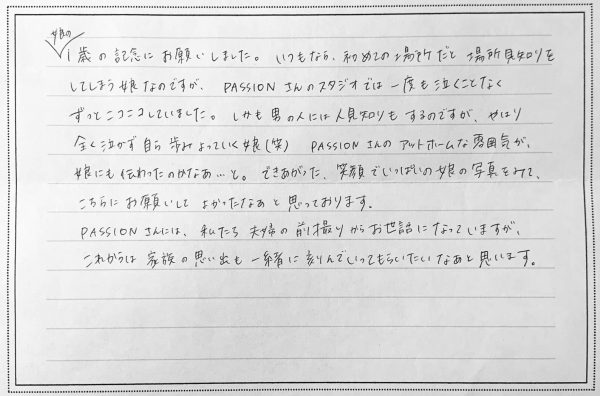 娘の
1歳の記念にお願いしました。いつもなら、初めての場所だと場所見知りを
してしまう娘なのですが、PASSIONさんのスタジオでは一度も泣くことなく
ずっとニコニコしていました。しかも男の人には人見知りもするのですが、やはり
全く泣かず自ら歩みよっていく娘(笑) PASSIONさんのアットホームな雰囲気が、
娘にも伝わったのかなぁ…と。できあがった、笑顔でいっぱいの娘の写真をみて、
こちらにお願いしてよかったなぁと思っております。
PASSIONさんには、私たち夫婦の前撮りからお世話になっていますが、
これからは家族の思い出も一緒に刻んでいってもらいたいなぁと思います。